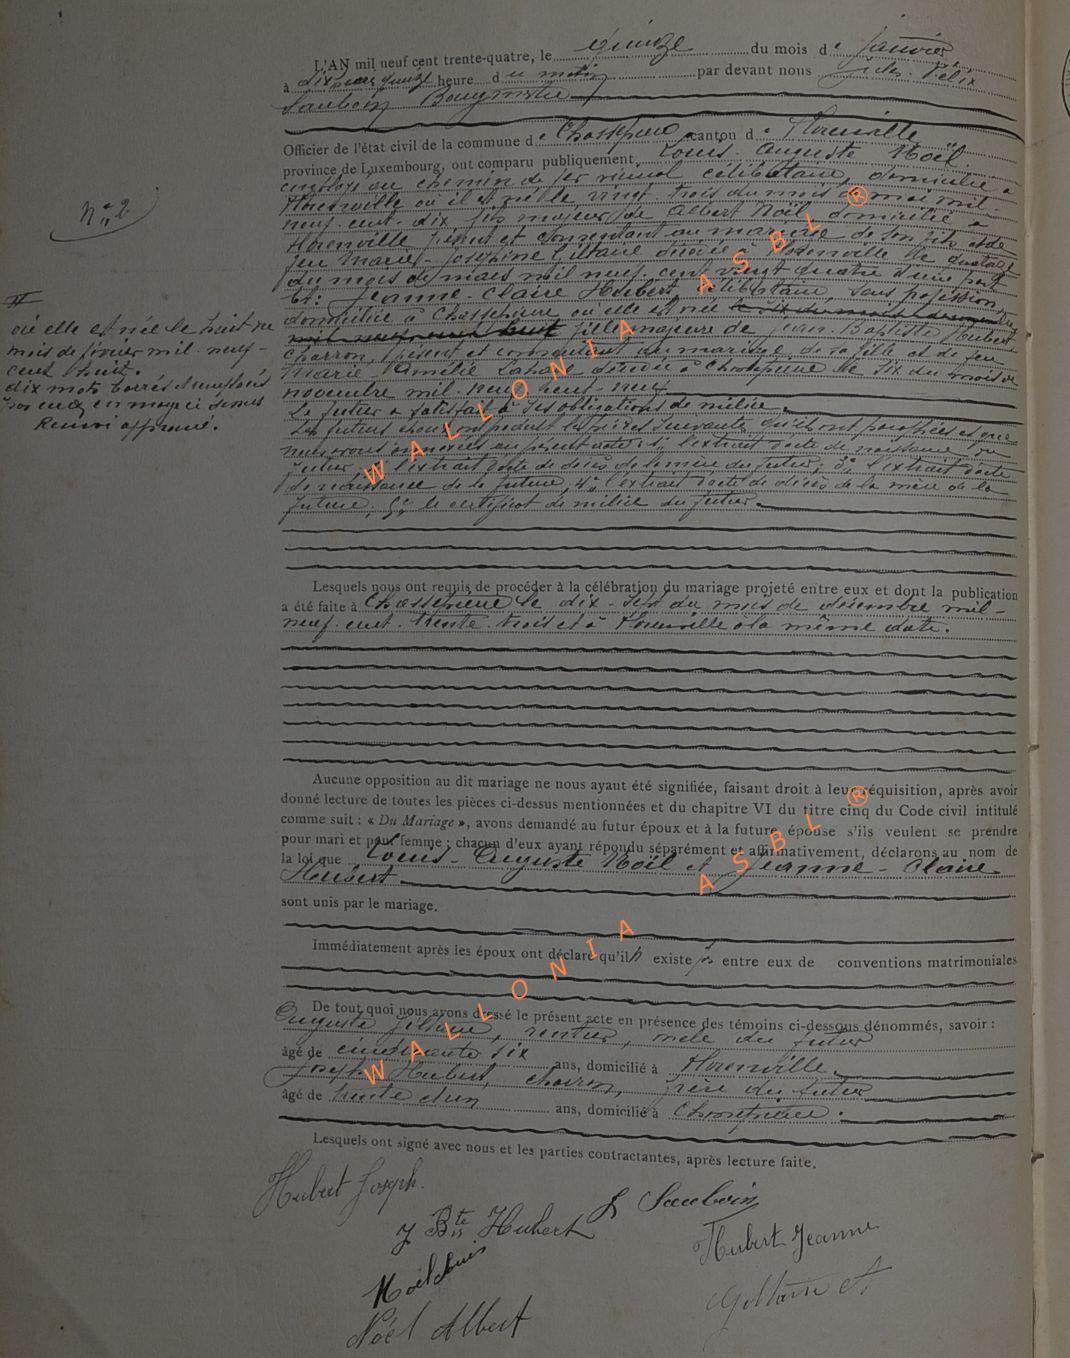 L'AN mil neuf cent trente-quatre, le quinze du mois de janvier
à dix heure du matin par devant nous Jules Félix
Sauboin Bourgmestre
Officier de l'état civil de la commune de Chassepierre canton de Florenville
province de Luxembourg, ont comparu publiquement, Louis-Auguste Noël
employé au chemin de fer vicinal célibataire, domicilié à
Florenville où il est né le vingt trois du mois de mai mil-
neuf-cent-dix fils majeur de Albert Noël domicilié à
Florenville présent et consentant au mariage de son fils et de
feu Marie-Josephine Giltaire décédée à Florenville le quatorze
du mois de mars mil neuf-cent vingt quatre d'une part
Et: Jeanne-Claire Hubert célibataire, sans profession
domiciliée à Chassepierre où elle est née
fille majeure de Jean-Baptiste Hubert
charron, présent et consentant au mariage de sa fille et de feu
Marie Amélie décédée à Chassepierre le six du mois de
novembre mil neuf cent neuf
Le futur a satisfait à ses obligations de milice.
Les futurs époux ont produit les pièces suivantes qu'ils ont paraphées et que
nous avons annexées au présent acte: 1° l'extrait d'acte de naissance du
futur; 2° l'extrait d'acte de décès de la mère du futur; 3° l'extrait d'acte
de naissance de la future; 4° l'extrait d'acte de décès de la mère de la
future; 5° le certificat de milice du futur.
N° 2
où elle est née le huit du
mois de février mil-neuf-
cent huit.
dix mots barrés et remplacés
par ceux en marge ci-dessus
Renvoi approuvé.
Lesquels nous ont requis de procéder à la célébration du mariage projeté entre eux et dont la publication
a été faite à Chassepierre le dix-sept du mois de décembre mil-
neuf-cent-trente-trois et à Florenville à la même date.
Aucune opposition au dit mariage ne nous ayant été signifiée, faisant droit à leur réquisition, après avoir
donné lecture de toutes les pièces ci-dessus mentionnées et du chapitre VI du titre cinq du Code civil intitulé
comme suit : « Du Mariage », avons demandé au futur époux et à la future épouse s'ils veulent se prendre
pour mari et pour femme ; chacun d'eux ayant répondu séparément et affirmativement, déclarons au nom de
la loi que Louis-Auguste Noël et Jeanne-Claire
Hubert
sont unis par le mariage.
Immédiatement après les époux ont déclaré qu'il n existe pas entre eux de conventions matrimoniales
De tout quoi nous avons dressé le présent acte en présence des témoins ci-dessous dénommés, savoir :
Auguste Giltaire, rentier, oncle du futur
âgé de cinquante six ans, domicilié à Florenville
Joseph Hubert, charron, frère du futur
âgé de trente et un ans, domicilié à Chassepierre.
Lesquels ont signé avec nous et les parties contractantes, après lecture faite.
Hubert Joseph.
J Bte Hubert
J Sauboin
Hubert Jeanne
Noël Louis
Giltaire A
Noël Albert
WALLONIA ASBL ®
WALLONIA ASBL ®